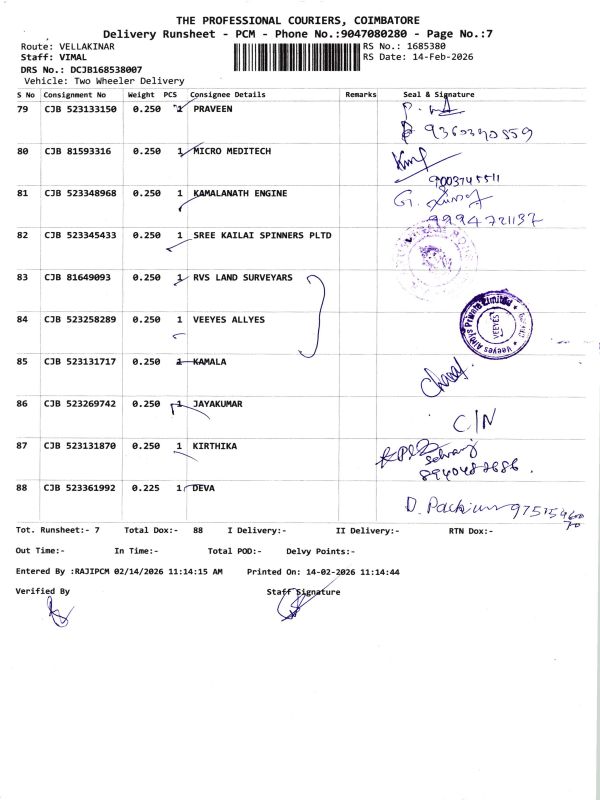 THE PROFESSIONAL COURIERS, COIMBATORE
Delivery Runsheet - PCM - Phone No.:9047080280 - Page No.:7
Route: VELLAKINAR RS No.: 1685380
Staff: VIMAL RS Date: 14-Feb-2026
DRS No.: DCJB168538007
Vehicle: Two Wheeler Delivery
S No Consignment No Weight PCS Consignee Details Remarks Seal & Signature
79 CJB 523133150 0.250 1 PRAVEEN
9360340559
80 CJB 81593316 0.250 1 MICRO MEDITECH
9003745511
81 CJB 523348968 0.250 1 KAMALANATH ENGINE
9994721137
82 CJB 523345433 0.250 1 SREE KAILAI SPINNERS PLTD
83 CJB 81649093 0.250 1 RVS LAND SURVEYARS
84 CJB 523258289 0.250 1 VEEYES ALLYES
Veeyes Alloys Private Limited
VEEYES
85 CJB 523131717 0.250 1 KAMALA
86 CJB 523269742 0.250 1 JAYAKUMAR
C/N
87 CJB 523131870 0.250 1 KIRTHIKA
Selvaraj
88 CJB 523361992 0.225 1 DEVA
D. Packium
Tot. Runsheet:- 7 Total Dox:- 88 I Delivery:- II Delivery:- RTN Dox:-
Out Time:- In Time:- Total POD:- Delvy Points:-
Entered By :RAJIPCM 02/14/2026 11:14:15 AM Printed On: 14-02-2026 11:14:44
Verified By Staff Signature